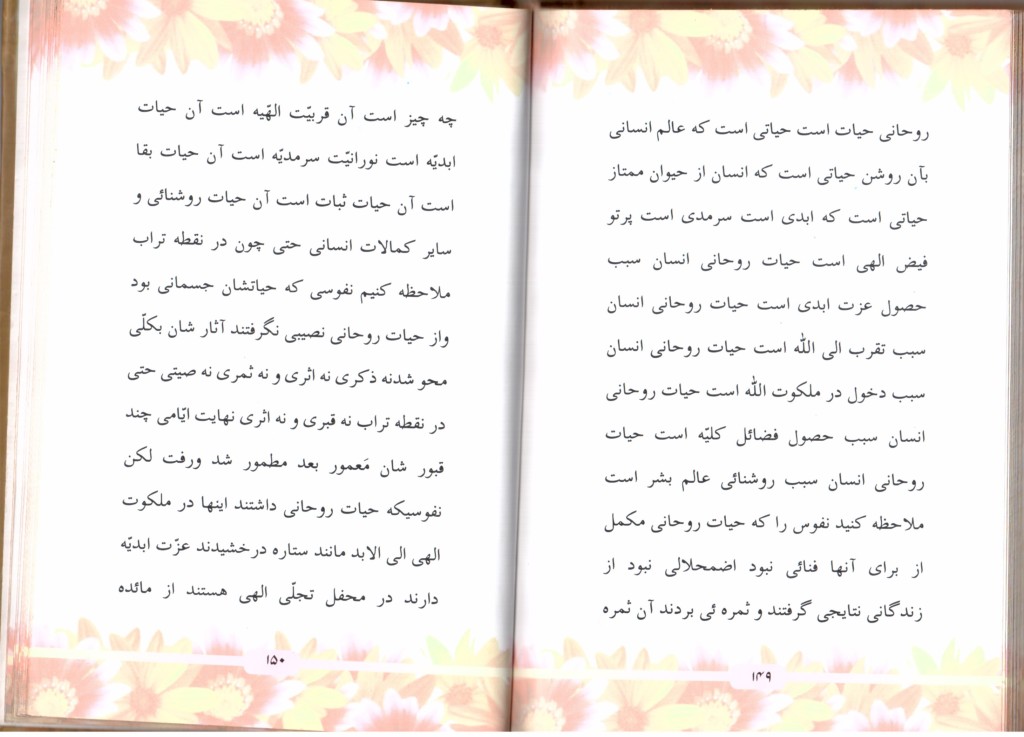 روحانی حیات است حیاتی است که عالم انسانی
بآن روشن حیاتی است که انسان از حیوان ممتاز
حیاتی است که ابدی است سرمدی است پرتو
فیض الهی است حیات روحانی انسان سبب
حصول عزت ابدی است حیات روحانی انسان
سبب تقرب الی الله است حیات روحانی انسان
سبب دخول در ملکوت الله است حیات روحانی
انسان سبب حصول فضائل کلیّه است حیات
روحانی انسان سبب روشنائی عالم بشر است
ملاحظه کنید نفوس را که حیات روحانی مکمل
از برای آنها فنائی نبود اضمحلالی نبود از
زندگانی نتایجی گرفتند و ثمره ئی بردند آن ثمره
۱۴۹
چه چیز است آن قربیّت الهّیه است آن حیات
ابدیّه است نورانیّت سرمدیّه است آن حیات بقا
است آن حیات ثبات است آن حیات روشنائی و
سایر کمالات انسانی حتی چون در نقطه تراب
ملاحظه کنیم نفوسی که حیاتشان جسمانی بود
واز حیات روحانی نصیبی نگرفتند آثار شان بکلّی
محو شدنه ذکری نه اثری و نه ثمری نه صیتی حتی
در نقطه تراب نه قبری و نه اثری نهایت ایّامی چند
قبور شان مَعمور بعد مطمور شد ورفت لکن
نفوسیکه حیات روحانی داشتند اینها در ملکوت
الهی الی الابد مانند ستاره درخشیدند عزّت ابدیّه
دارند در محفل تجلّی الهی هستند از مائده
۱۵۰